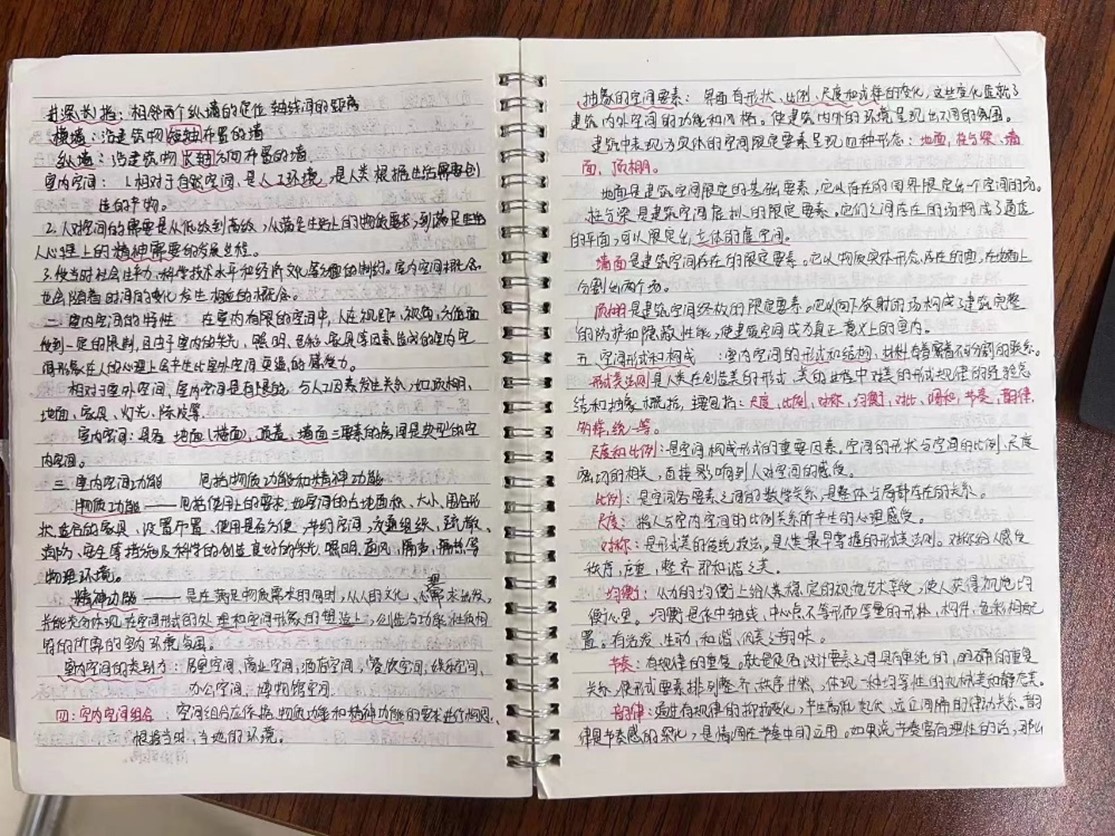 进深(长)指：相邻两个纵墙的定位轴线间的距离
横墙：沿建筑物短轴布置的墙
纵墙：沿建筑物长轴方向布置的墙
室内空间：1.相对于自然空间、是人工环境，是人类根据生活需要创
造的产物。
2.人对空间的需要是从低级到高级，从满足生理上的物质要求，到满足
人心理上的精神需要的发展过程。
3.受当时社会生产力、科学技术水平和经济文化等方面的制约。室内空间概念
也会随着时间的变化发生相应的概念。
二、室内空间的特性 在室内有限的空间中，人在视距、视角、方位面
受到一定的限制，且由于室内的采光、照明、色彩、家具等因素造成的室内空
间形象在人的心理上会产生比室外空间更强的感受力。
相对于室外空间，室内空间是有限的，与人工因素发生关系，如顶棚、
地面、家具、灯光、陈设等
室内空间：具备地面(楼面)、顶盖、墙面三要素的房间是典型的室
内空间。
三、室内空间功能 包括物质功能和精神功能
物质功能——包括使用上的要求，如空间的占地面积、大小、围合形
状、适合的家具、设置布置、使用是否方便、节约空间、交通组织、疏散、
消防、安全等措施及科学的创造良好的采光、照明、通风、隔声、隔热等
物理环境。
精神功能——是在满足物质需求的同时，从人的文化、心理需求出发，
并能充分体现在空间形式的处理和空间形象的塑造上，创造与功能性质相
符的所需的室内环境氛围。
室内空间的类别分：居室空间、商业空间、酒店空间、餐饮空间、娱乐空间、
办公空间、博物馆空间
四：室内空间组合：空间组合应依据物质功能和精神功能的要求进行构思，
根据当时、当地的环境，
抽象的空间要素：界面有形状、比例、尺度和式样的变化，这些变化造就了
建筑内外空间的功能和风格。使建筑内外的环境呈现出不同的氛围。
建筑中表现为实体的空间限定要素呈现四种形态：地面，柱与梁、墙
面、顶棚。
地面是建筑空间限定的基础要素，它以存在的周界限定出一个空间的场。
柱与梁是建筑空间虚拟的限定要素。它们之间存在的场构成了通透
的平面，可以限定出立体的虚空间。
墙面是建筑空间存在的限定要素。它以物质实体形态存在的面，在地面上
分割出两个场。
顶棚是建筑空间终极的限定要素。它以向下放射的场构成了建筑完整
的防护和隐蔽性能，使建筑空间成为真正意义上的室内。
五、空间形式和构成 ：室内空间的形式和结构、材料有着密不分割的联系。
形式美法则是人类在创造美的形式、美的过程中对美的形式规律的经验总
结和抽象概括，主要包括：尺度，比例，对称，均衡，对比，调和，节奏，韵律，
多样，统一等。
尺度和比例：是空间构成形式的重要因素，空间的形状与空间的比例、尺度
密切的相关，直接影响到人对空间的感受。
比例：是空间各要素之间的数学关系，是整体与局部存在的关系。
尺度：将人与室内空间的比例关系所产生的心理感受。
对称：是形式美的传统技法。是人类最早掌握的形式美法则。对称给人感受
秩序，庄重，整齐那和谐之美。
均衡：从力的均衡上给人类稳定的视觉艺术享受，使人获得视觉均
衡心里。均衡是依中轴线，中心点不等形而等量的形体，构件，色彩相配
置。有活泼、生动、和谐、优美之韵味。
节奏：有规律的重复。就是使各设计要素之间具有单纯的，明确的重复
关系，使形式要素排列整齐、秩序井然，体现一种均等性的机械美和静态美。
韵律：通过有规律的抑扬变化，产生高低起伏、远近间隔的律动关系，韵
律是节奏感的深化，是情调在节奏中的运用。如果说节奏富有理性的话，那么